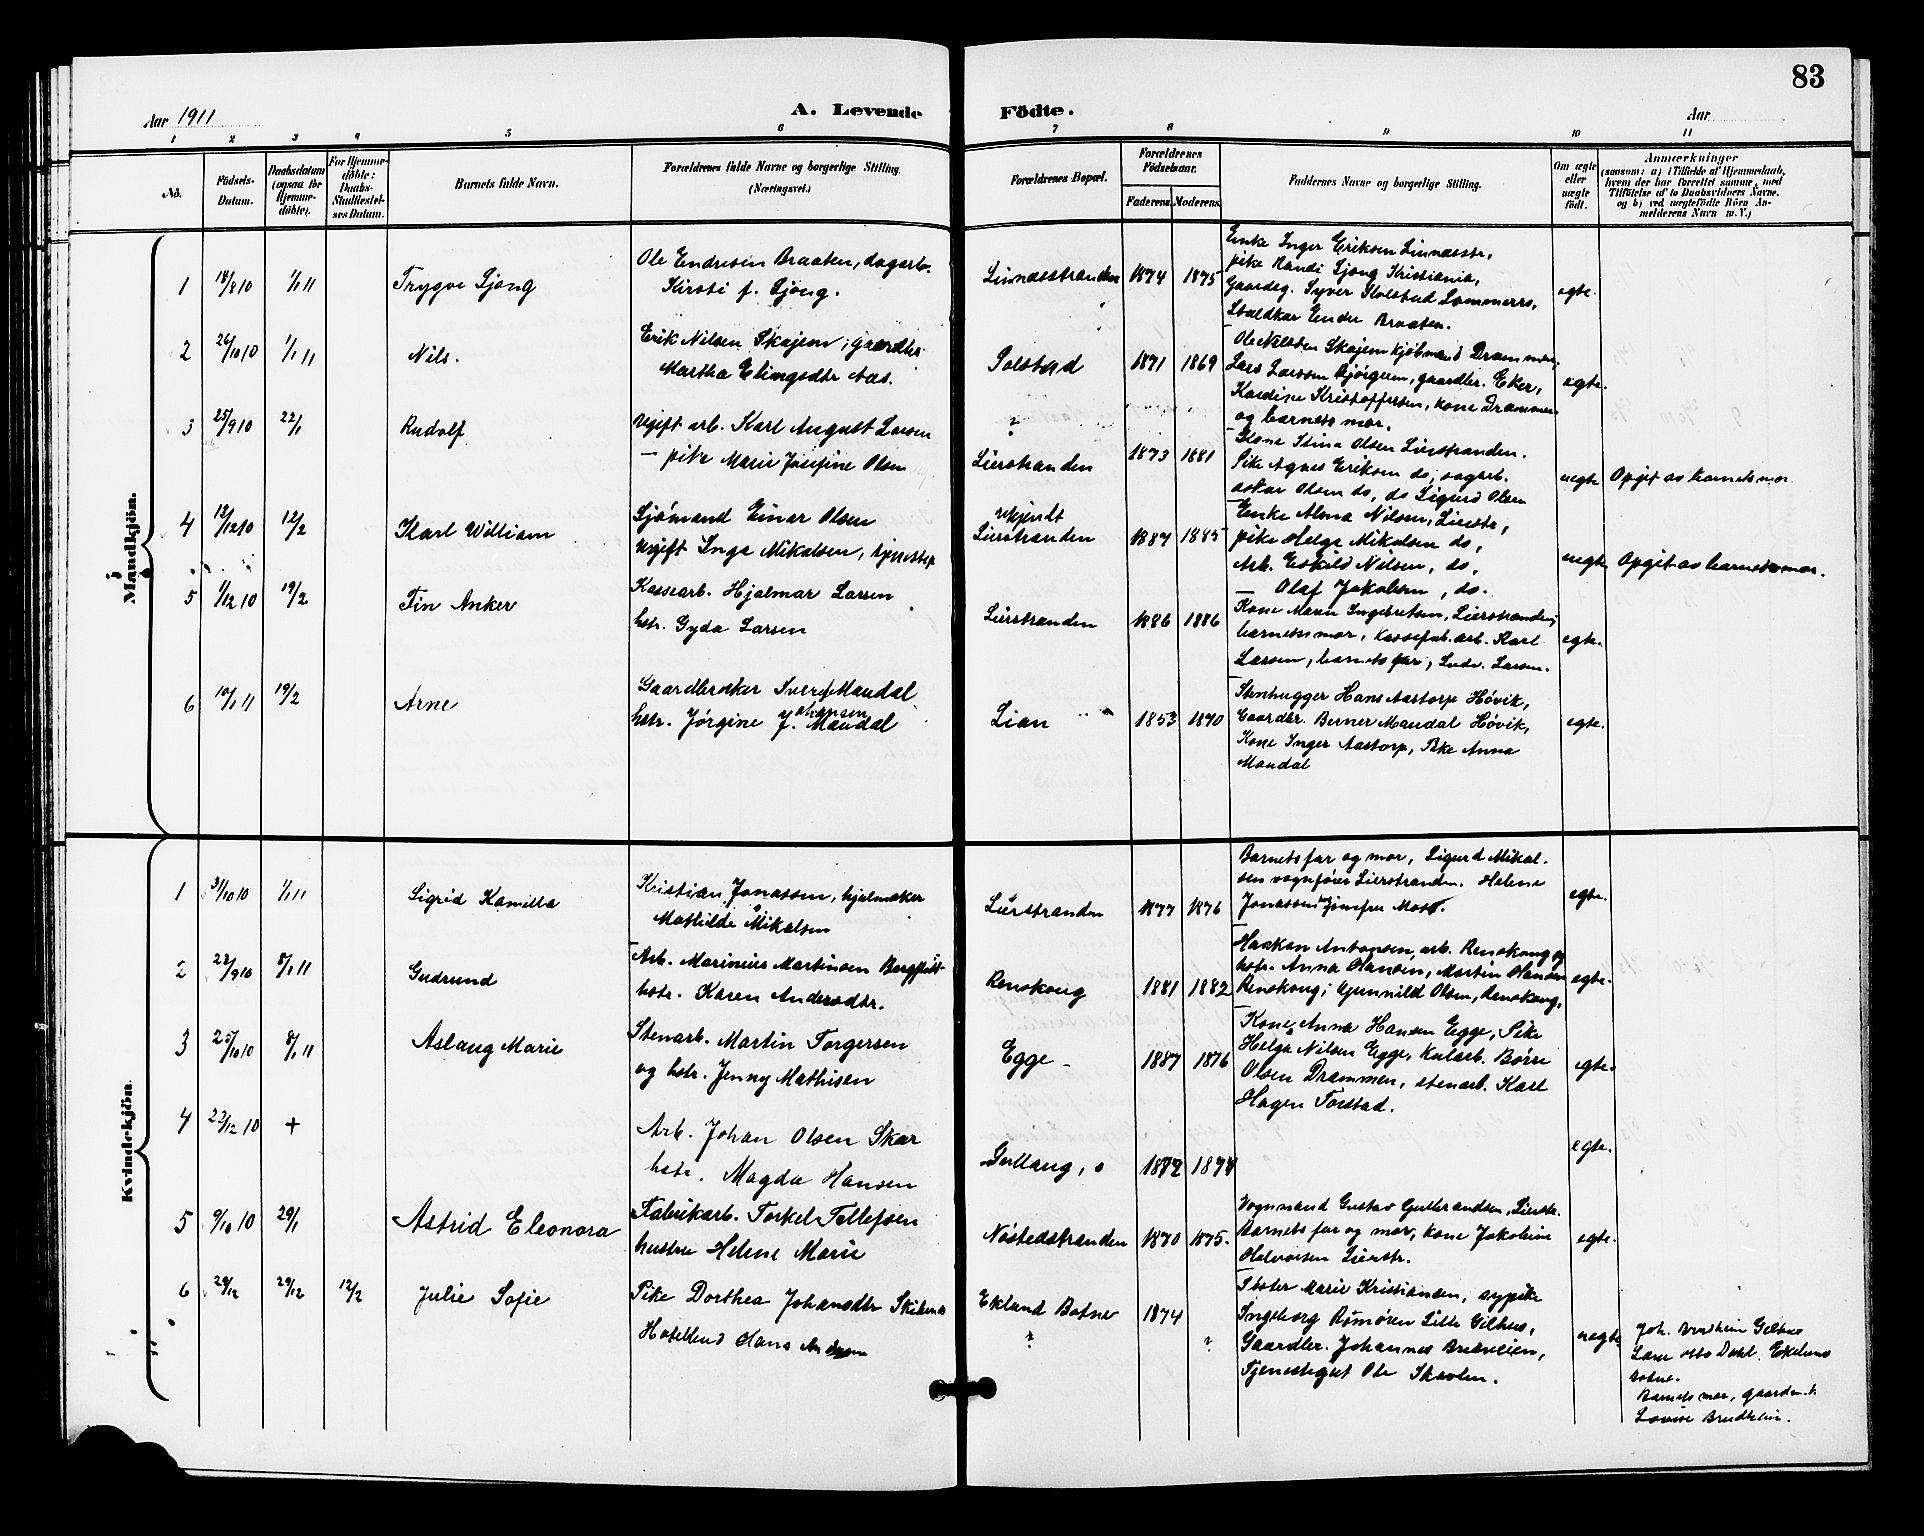 83
Aar 1911
A. Levende Födte.
Aar
1 2 3 4 5 6 7 8 9 10 11
No.
Födsels-Datum.
Daabsdatum (ogsaa for Hjemmedöbte).
For Hjemmedöbte: Daabs-Stadfæstelses Datum.
Barnets fulde Navn.
Forældrenes fulde Navne og borgerlige Stilling. (Næringsvei.)
Forældrenes Bopæl.
Forældrenes Födselsaar.
Faderens. Moderens.
Faddernes Navne og borgerlige Stilling.
Om ægte eller uægte født.
Anmærkninger
(saasom: a) i Tilfælde af Hjemmedaab, hvem der har forrettet samme, med Tilföielse af to Daabsvidners Navne, og b) ved uægtefödte Börn Anmelderens Navn m. V.)
Mandkjön.
1 18/8 10 1/1 11 Trygve Ljong
Ole Endresen Braaten, dagarb.
Kirsti f. Ljong.
Linnesstranden 1874 1875
Enke Inger Eriksen Linnesstr,
pike Randi Ljong Kristiania,
Gaardeg. Syver Solstad Lommerrs,
Staldkar Ender Braaten.
egte.
2 26/10 10 1/1 11 Nils.
Erik Nilsen Skajem, gaardbr.
Martha Elingsdtr Aas.
Solstad 1871 1869
Ole Nilsen Skajem kjøbmand Drammen,
Lars Larssen Bjørgum, gaardbr. Eker,
Kardine Kristoffersen, kone Drammen
og barnets mor.
egte.
3 25/9 10 22/1 Rudolf
Ugift arb. Karl August Larsen
— pike Marie Josefine Olsen
?
Lierstranden 1873 1881
Kone Stina Olsen Lierstranden.
Pike Agnes Eriksen do, dagarb.
Oskar Olsen do, do Sigurd Olsen
uegte Opgit av barnets mor
4 12/12 10 12/2 Karl William
Sjømand Einar Olsen
ugift Inga Mikalsen, tjenestep
Ukjendt
Lierstranden 1887 1885
Enke Alma Nilsen, Lierstr,
pike Helga Mikalsen do,
Arb. Eskild Nilsen, do,
Olaf Jakobsen, do.
uegte Opgit av barnets mor.
5 1/12 10 19/2 Fin Anker
Kassearb. Hjalmar Larsen
hstr. Gyda Larsen
Lierstranden 1886 1886
Kone Maren Ingebretsen, Lierstranden,
barnets mor, kassefab.arb. Karl
Larsen, barnets far, Ludv. Larsen.
egte.
6 10/1 11 19/2 Arne
Gaardbruker Sverre Maudal
hstr. Jørgine Johansen Maudal
Lian 1853 1870
Stenhugger Hans Aastorp Høvik,
Gaardbr. Berner Maudal Høvik,
Kone Inger Aastorp, Pike Anna
Maudal
egte.
Kvindekjön.
1 31/10 10 1/1 11 Sigrid Kamilla
Kristian Jonassen, hjulmaker
Mathilde Mikalsen
Lierstranden 1877 1876
Barnets far og mor, Sigurd Mikalsen vognfører Lierstranden. Helene
Jonassen Jomfru Moss.
egte.
2 22/9 10 8/1 11 Gudrund
Arb. Marinius Martinsen
hstr. Karen Andersdtr.
Renskoug 1881 1882
Haakon Antonsen, arb. Renskoug og
hstr. Anna Hansen, Martin Hansen
Renskoug; Gunnild Olsen, Renskoug,
egte.
3 25/10 10 8/1 11 Aslaug Marie
Stenarb. Martin Torgersen
og hstr. Jenny Mathisen
Egge 1887 1876
Kone Anna Hansen Egge, Pike
Helga Nilsen Egge, Kularb. Børre
Olsen Drammen, stenarb. Karl
Hagen Torstad.
egte.
4 22/12 10 +
Arb. Johan Olsen Skar
hstr. Magda Hansen
Gullaug, 1872 1874
egte.
5 9/10 10 29/1 Astrid Eleonora
Fabrikarb. Torkel Tellefsen
hustru Helene Marie
Nøstedstranden 1870 1875.
Vognmand Gustav Gulbrandsen, Lierstr.
Barnets far og mor, kone Jakobine
Halvorsen Lierstr.
egte.
6 29/12 29/12 12/2 Julie Sofie
Pike Dorthea Johansdtr
Hotelbud Hans Andersen
Eklund Botne 1874
? ?
Marie Kristiansen, sypike
Ingeborg Rømøren Lille Gilhus,
Gaardbr. Johannes
Tjenestegut Ole Skavlen.
uegte
Joh. Brudheim Gilhus
Lærer Otto Dahl. Eklund
Botne.
Barnets mor,
Lovise Brudheim.